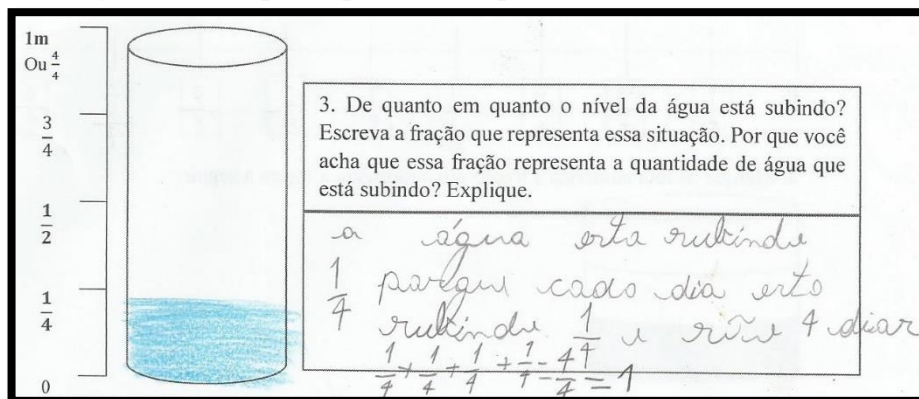 1m
Ou 4/4
3/4
1/2
1/4
0
3. De quanto em quanto o nível da água está subindo?
Escreva a fração que representa essa situação. Por que você
acha que essa fração representa a quantidade de água que
está subindo? Explique.
a água esta subindo
1/4 porque cada dia esta
subindo 1/4 e são 4 dias
1/4+1/4+1/4+1/4=4/4=1